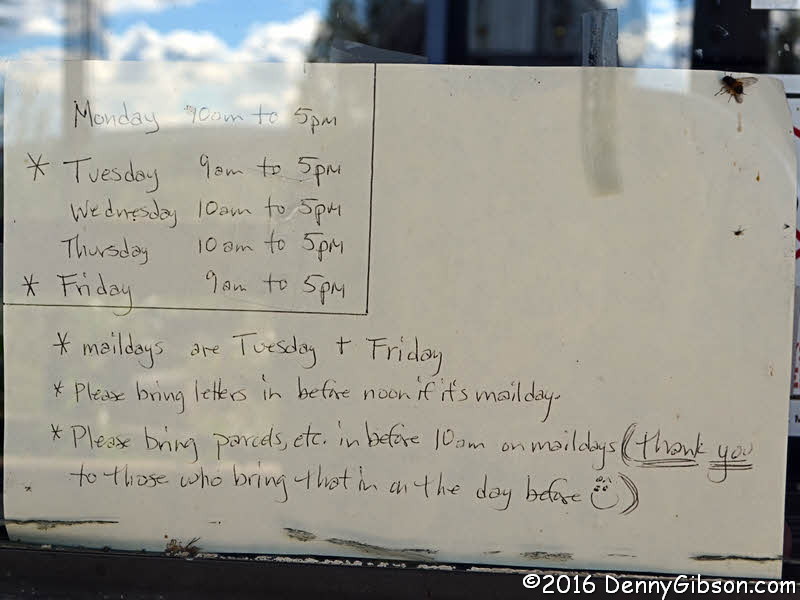 Monday 10am to 5pm
* Tuesday 9am to 5pm
Wednesday 10am to 5pm
Thursday 10am to 5pm
* Friday 9am to 5pm
* maildays are Tuesday + Friday
* Please bring letters in before noon if it's mailday.
* Please bring parcels, etc. in before 10am on maildays (thank you
to those who bring that in on the day before)
©2016 DennyGibson.com